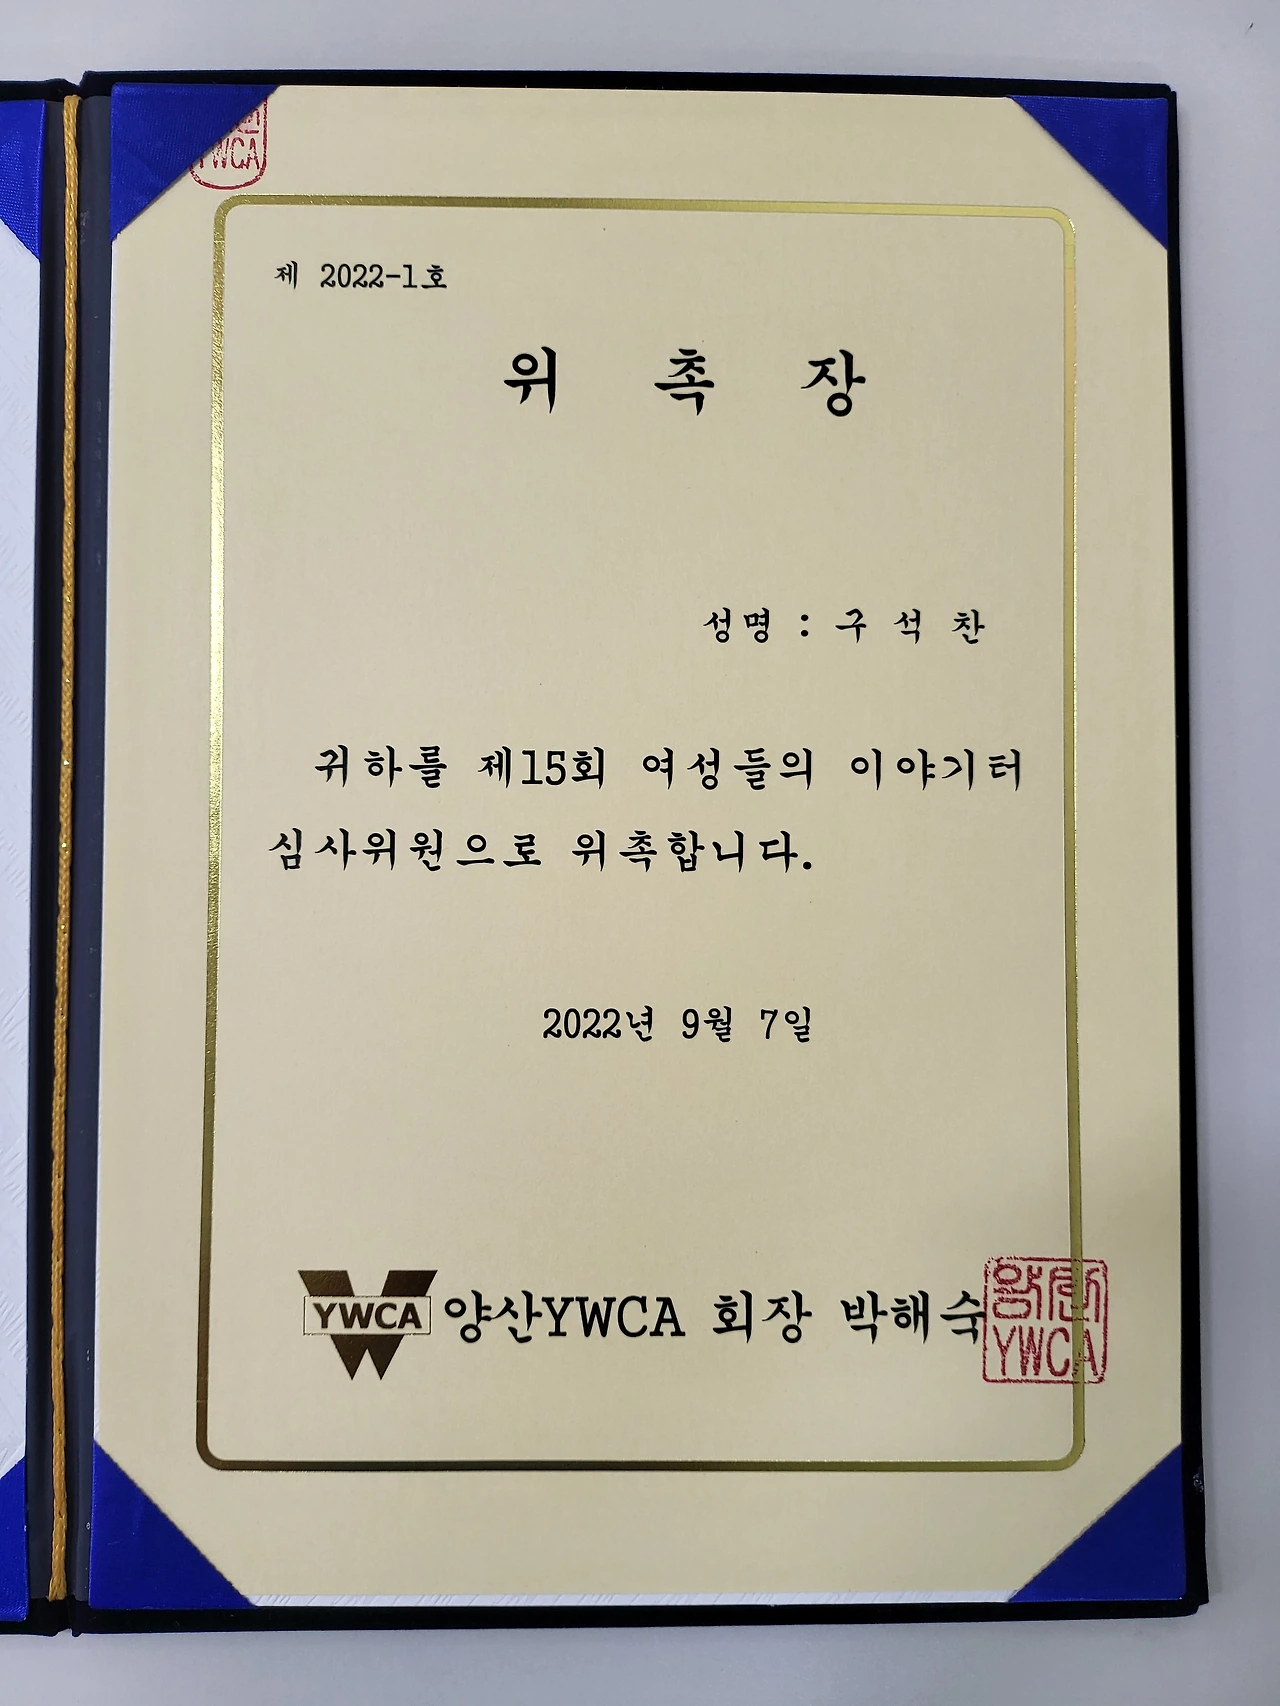 YWCA
제 2022-1호
위 촉 장
성명 : 구 석 찬
귀하를 제15회 여성들의 이야기터
심사위원으로 위촉합니다.
2022년 9월 7일
YWCA 양산YWCA 회장 박해숙
양산
YWCA